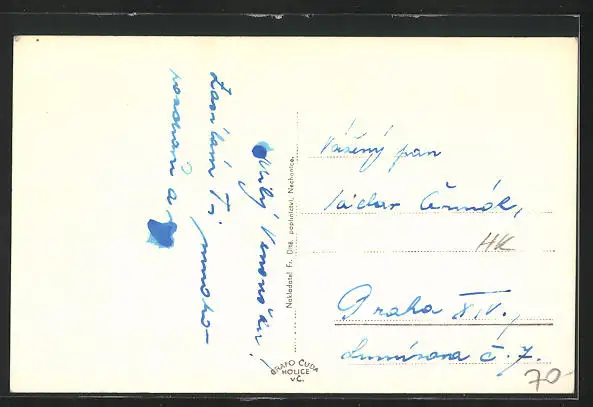 Milý
Zasílám Ti mnoho
pozdravů a
Nakladatel Fr. Dítě, papírnictví, Nechanice.
GRAFO ČUDA
HOLICE
v Č.
Vážený pan
Václav Čermák,
HK
Praha XIV.,
č. 7.
70-